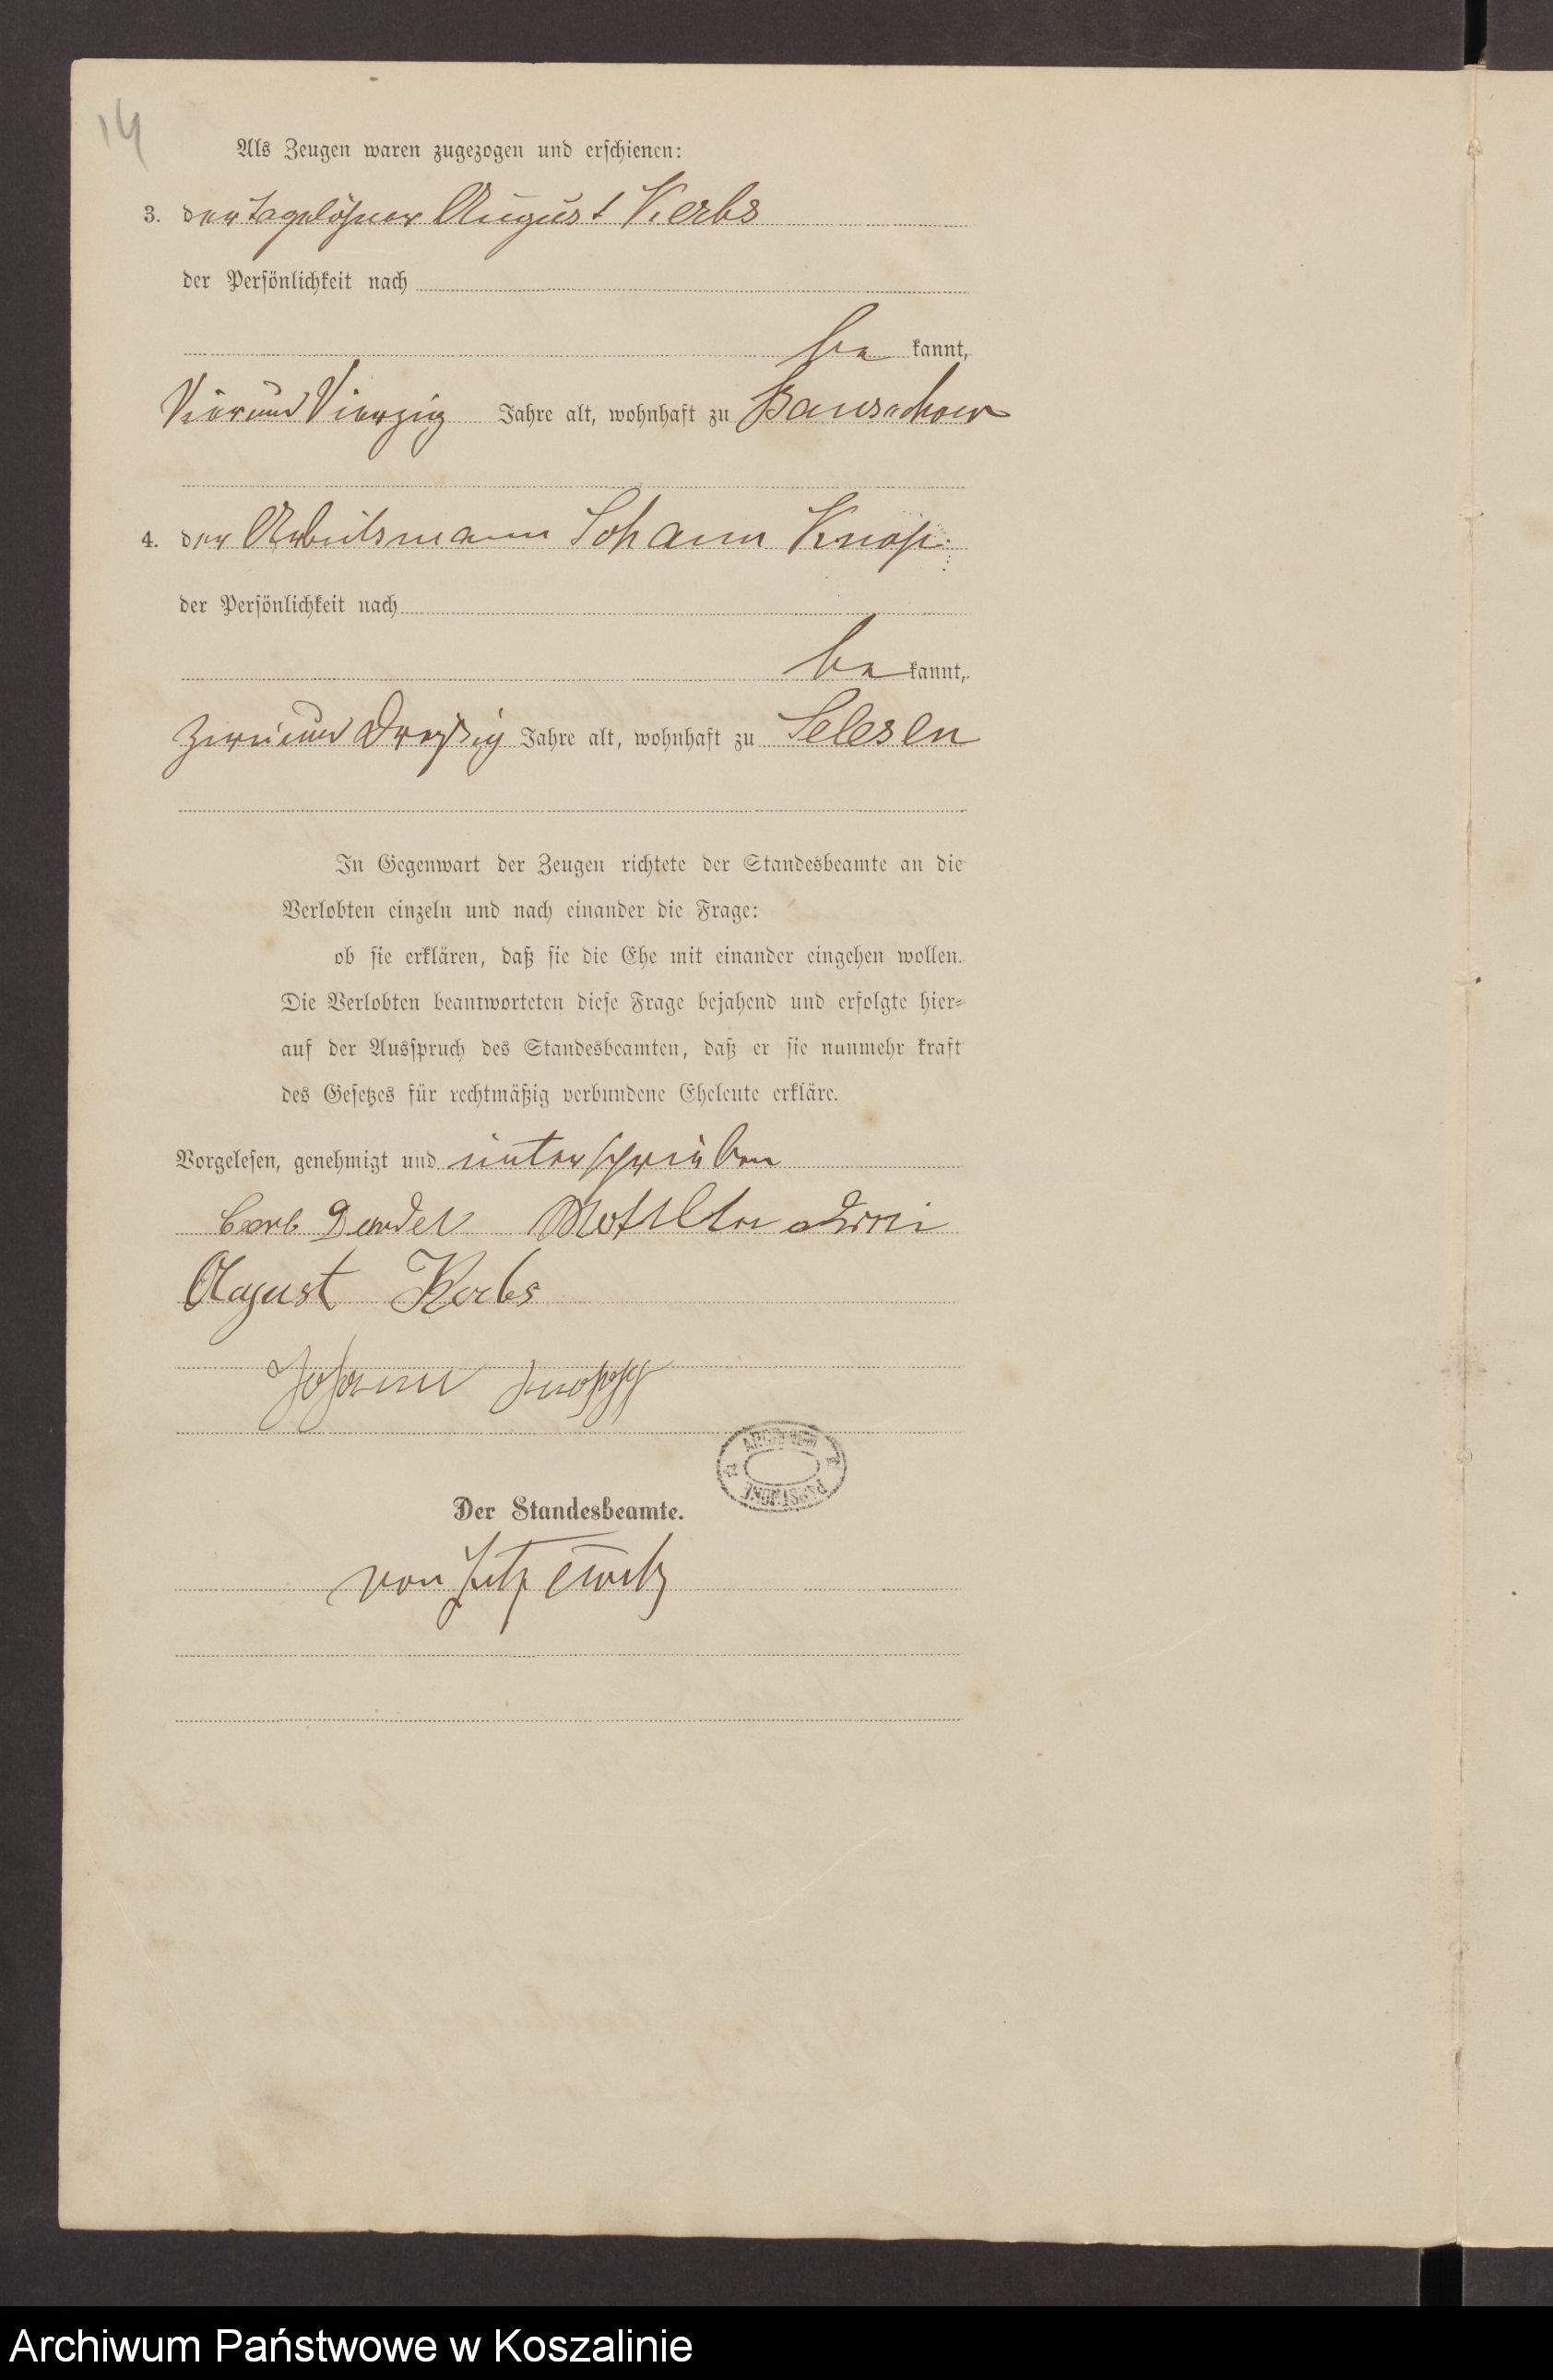 14
Als Zeugen waren zugezogen und erschienen:
3. der Tagelöhner August Kerbs
der Persönlichkeit nach
be kannt,
Vierund Vierzig Jahre alt, wohnhaft zu
4. der Arbeitsmann Johann Knop
der Persönlichkeit nach
be kannt,
Zweiund Dreißig Jahre alt, wohnhaft zu Selesen
In Gegenwart der Zeugen richtete der Standesbeamte an die
Verlobten einzeln und nach einander die Frage:
ob sie erklären, daß sie die Ehe mit einander eingehen wollen.
Die Verlobten beantworteten diese Frage bejahend und erfolgte hier-
auf der Ausspruch des Standesbeamten, daß er sie nunmehr kraft
des Gesetzes für rechtmäßig verbundene Eheleute erkläre.
Vorgelesen, genehmigt und unterschrieben
August Kerbs
Johann
ARCHIWUM PAŃSTWOWE
Der Standesbeamte.
von Zitzewitz
Archiwum Państwowe w Koszalinie